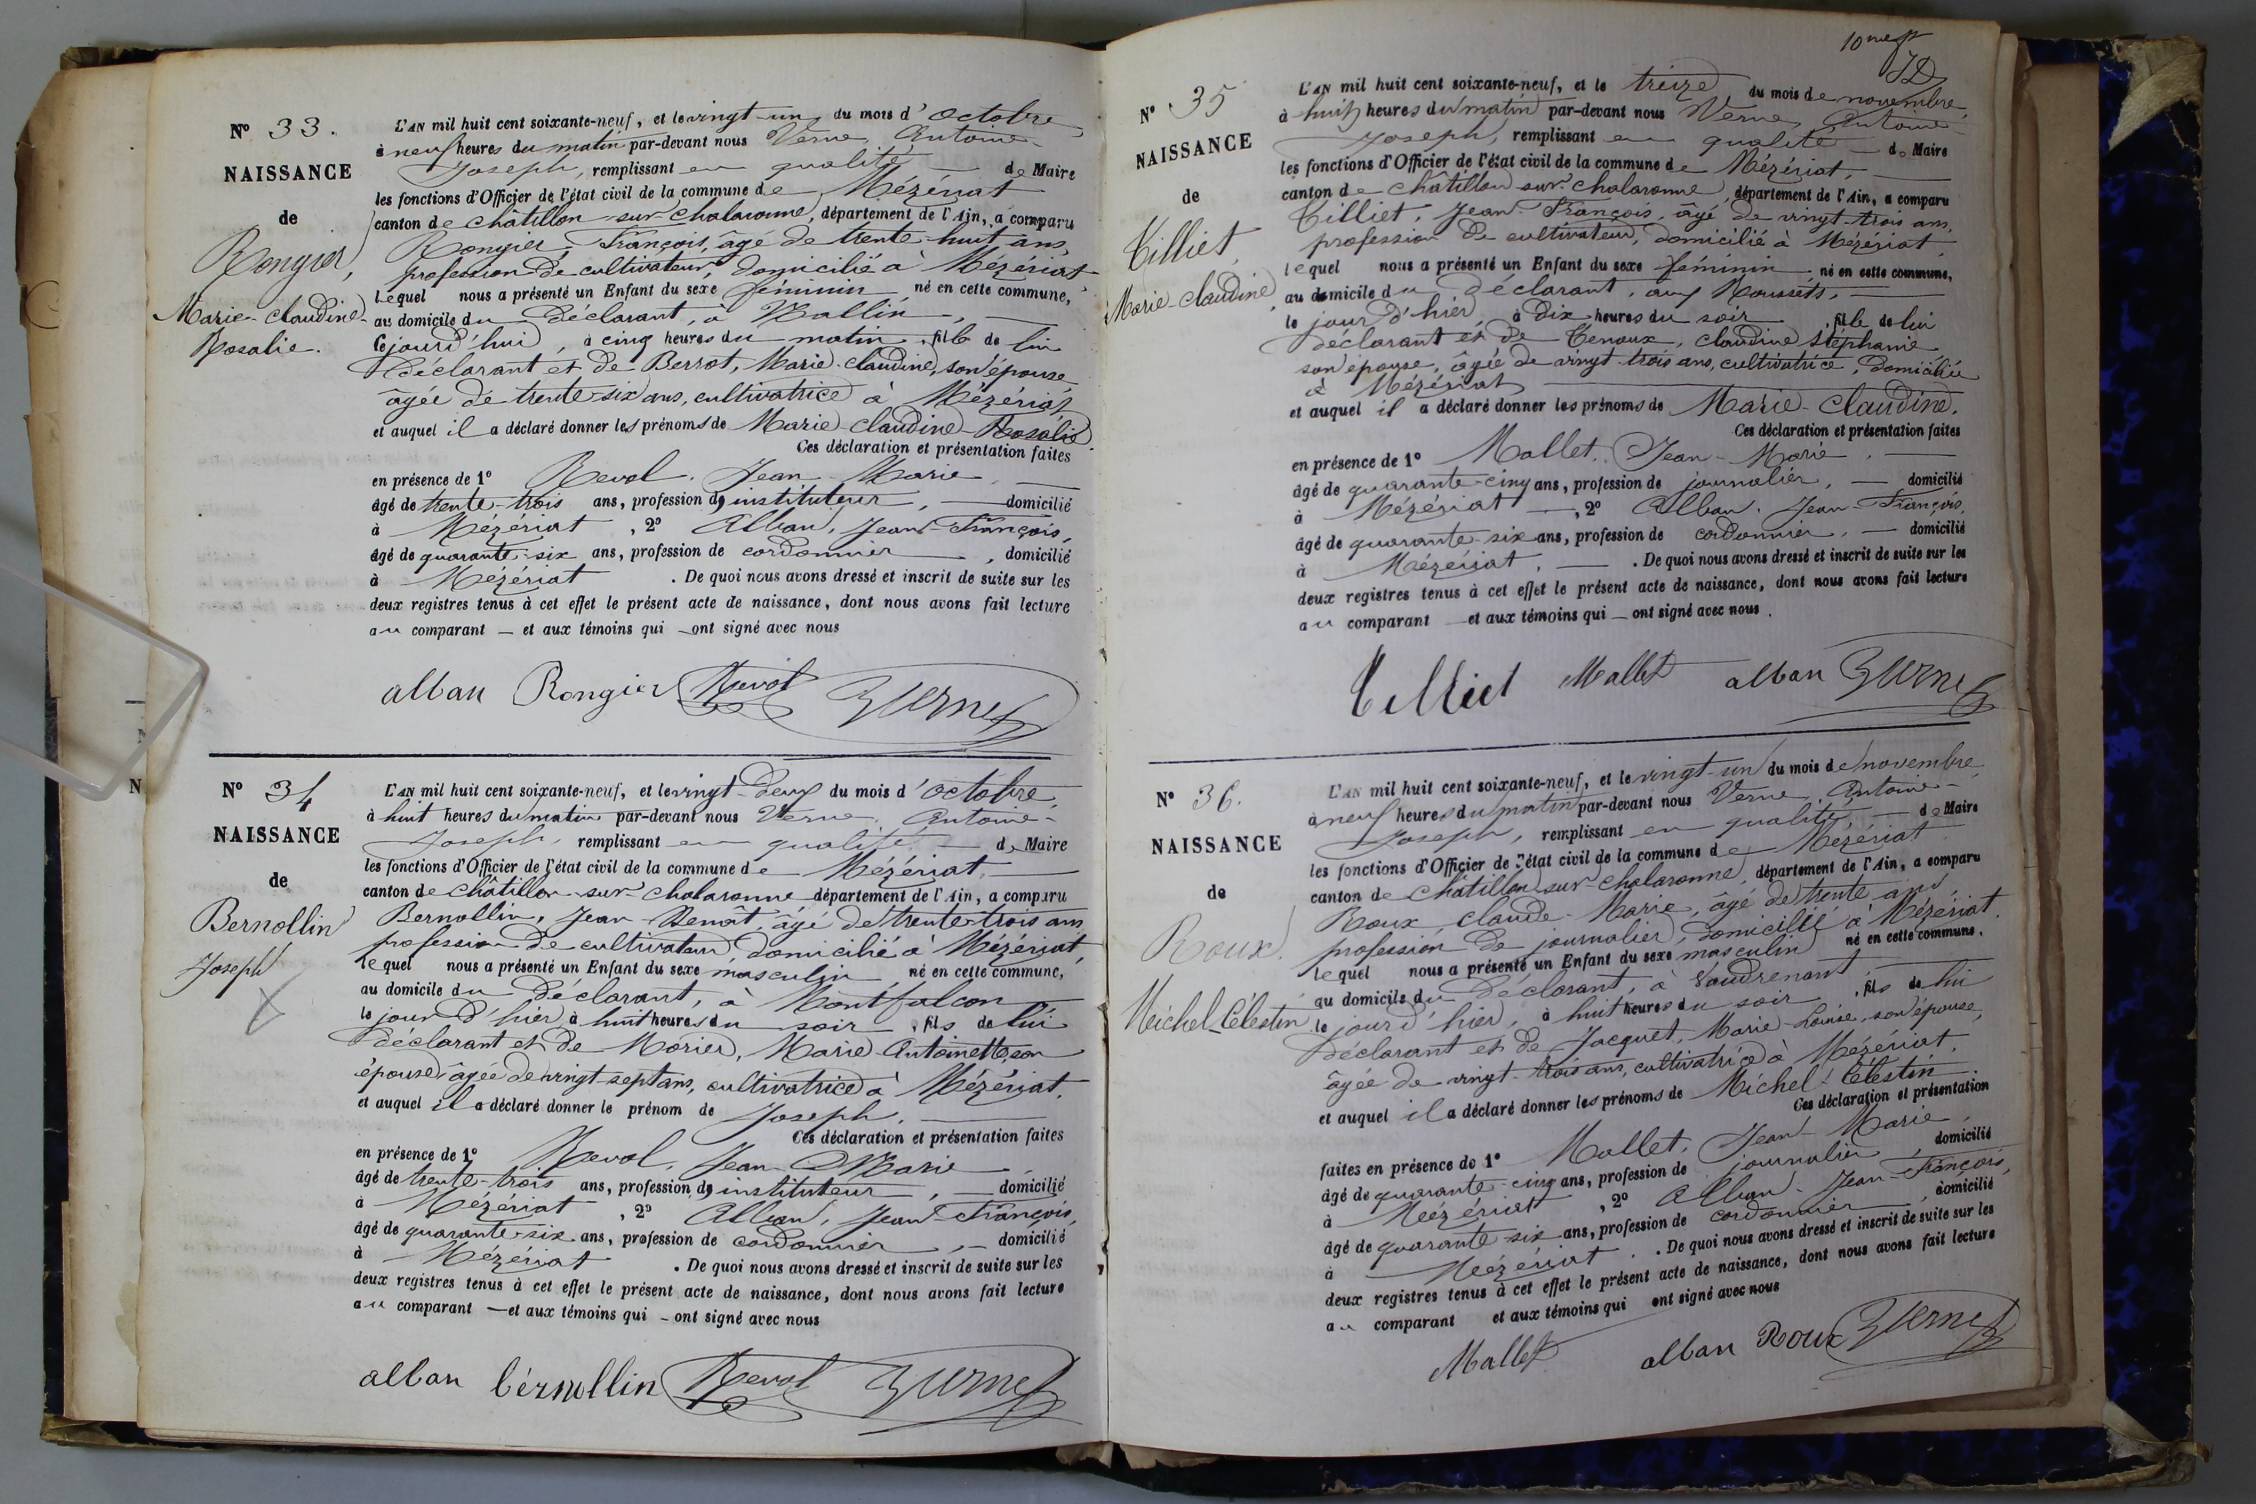 N° 33.
NAISSANCE
de
Rongier,
Marie-Claudine-
Rosalie.
L'AN mil huit cent soixante-neuf, et le vingt-un du mois d'octobre
à neuf heures du matin par-devant nous Verne, Antoine-
Joseph, remplissant en qualité de Maire
les fonctions d'Officier de l'état civil de la commune de Mézériat
canton de châtillon-sur-chalaronne, département de l'Ain, a comparu
Rongier, François, âgé de trente-huit ans,
profession de cultivateur, domicilié à Mézériat
lequel nous a présenté un Enfant du sexe féminin né en cette commune,
au domicile du déclarant, à Vallin,
ce jourd'hui, à cinq heures du matin, fille de lui
déclarant et de Berrot, Marie-Claudine, son épouse
âgée de trente-six ans, cultivatrice à Mézériat,
et auquel il a déclaré donner les prénoms de Marie-Claudine-Rosalie
Ces déclaration et présentation faites
en présence de 1° Revol, Jean-Marie,
âgé de trente-trois ans, profession d'instituteur, domicilié
à Mézériat, 2° Alban, Jean-François,
âgé de quarante-six ans, profession de cordonnier, domicilié
à Mézériat. De quoi nous avons dressé et inscrit de suite sur les
deux registres tenus à cet effet le présent acte de naissance, dont nous avons fait lecture
au comparant — et aux témoins qui — ont signé avec nous
alban Rongier Revol Verne
N° 34
NAISSANCE
de
Bernollin
Joseph
L'AN mil huit cent soixante-neuf, et le vingt-deux du mois d'octobre,
à huit heures du matin par-devant nous Verne, Antoine-
Joseph, remplissant en qualité de Maire
les fonctions d'Officier de l'état civil de la commune de Mézériat,
canton de châtillon-sur-chalaronne département de l'Ain, a comparu
Bernollin, Jean-Benoît, âgé de trente-trois ans
profession de cultivateur, domicilié à Mézériat,
lequel nous a présenté un Enfant du sexe masculin né en cette commune,
au domicile du déclarant, à Montfalcon
le jour d'hier à huit heures du soir, fils de lui
déclarant et de Morier, Marie-Antoinette, son
épouse âgée de vingt-sept ans, cultivatrice à Mézériat,
et auquel il a déclaré donner le prénom de Joseph,
Ces déclaration et présentation faites
en présence de 1° Revol, Jean-Marie
âgé de trente-trois ans, profession d'instituteur, domicilié
à Mézériat, 2° Alban, Jean-François,
âgé de quarante-six ans, profession de cordonnier, domicilié
à Mézériat. De quoi nous avons dressé et inscrit de suite sur les
deux registres tenus à cet effet le présent acte de naissance, dont nous avons fait lecture
au comparant — et aux témoins qui — ont signé avec nous
alban bérnollin Revol Verne
N° 35
NAISSANCE
de
Tilliet,
Marie-Claudine
L'AN mil huit cent soixante-neuf, et le treize du mois de novembre,
à huit heures du matin par-devant nous Verne, Antoine-
Joseph, remplissant en qualité de Maire
les fonctions d'Officier de l'état civil de la commune de Mézériat,
canton de châtillon-sur-chalaronne, département de l'Ain, a comparu
Tilliet, Jean-François, âgé de vingt-trois ans,
profession de cultivateur, domicilié à Mézériat
lequel nous a présenté un Enfant du sexe féminin né en cette commune,
au domicile du déclarant, aux Roussets,
le jour d'hier à dix heures du soir, fille de lui
déclarant et de Tenoux, claudine stéphanie
son épouse, âgée de vingt-trois ans, cultivatrice, domiciliée
à Mézériat
et auquel il a déclaré donner les prénoms de Marie-Claudine.
Ces déclaration et présentation faites
en présence de 1° Mallet, Jean-Marie,
âgé de quarante-cinq ans, profession de journalier, domicilié
à Mézériat, 2° Alban, Jean-François,
âgé de quarante-six ans, profession de cordonnier, domicilié
à Mézériat. De quoi nous avons dressé et inscrit de suite sur les
deux registres tenus à cet effet le présent acte de naissance, dont nous avons fait lecture
au comparant — et aux témoins qui — ont signé avec nous.
Tilliet Mallet alban Verne
N° 36.
NAISSANCE
de
Roux.
Michel-Célestin
L'AN mil huit cent soixante-neuf, et le vingt-un du mois de novembre
à neuf heures du matin par-devant nous Verne, Antoine-
Joseph, remplissant en qualité de Maire
les fonctions d'Officier de l'état civil de la commune de Mézériat
canton de châtillon-sur-chalaronne, département de l'Ain, a comparu
Roux, claude-Marie, âgé de trente ans,
profession de journalier, domicilié à Mézériat.
lequel nous a présenté un Enfant du sexe masculin né en cette commune,
au domicile du déclarant, à Vaudrenant,
le jour d'hier, à huit heures du soir, fils de lui
déclarant et de Jacquet, Marie-Louise, son épouse,
âgée de vingt-trois ans, cultivatrice à Mézériat.
et auquel il a déclaré donner les prénoms de Michel-Célestin
Ces déclaration et présentation
faites en présence de 1° Mallet, Jean-Marie,
âgé de quarante-cinq ans, profession de journalier, domicilié
à Mézériat, 2° Alban, Jean-François,
âgé de quarante-six ans, profession de cordonnier, domicilié
à Mézériat. De quoi nous avons dressé et inscrit de suite sur les
deux registres tenus à cet effet le présent acte de naissance, dont nous avons fait lecture
au comparant et aux témoins qui ont signé avec nous
Mallet alban Roux Verne